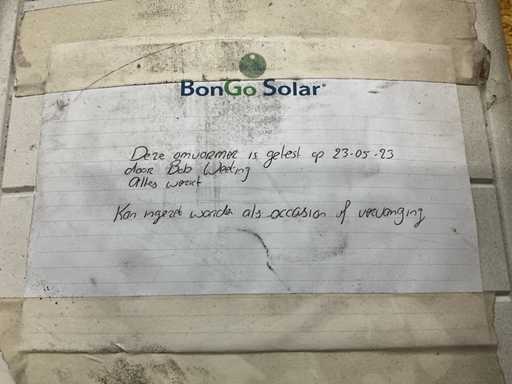 BonGo Solar
Deze omvormer is getest op 23-05-23
door Bob
Alles werkt
Kan ingezet worden als occasion of vervanging